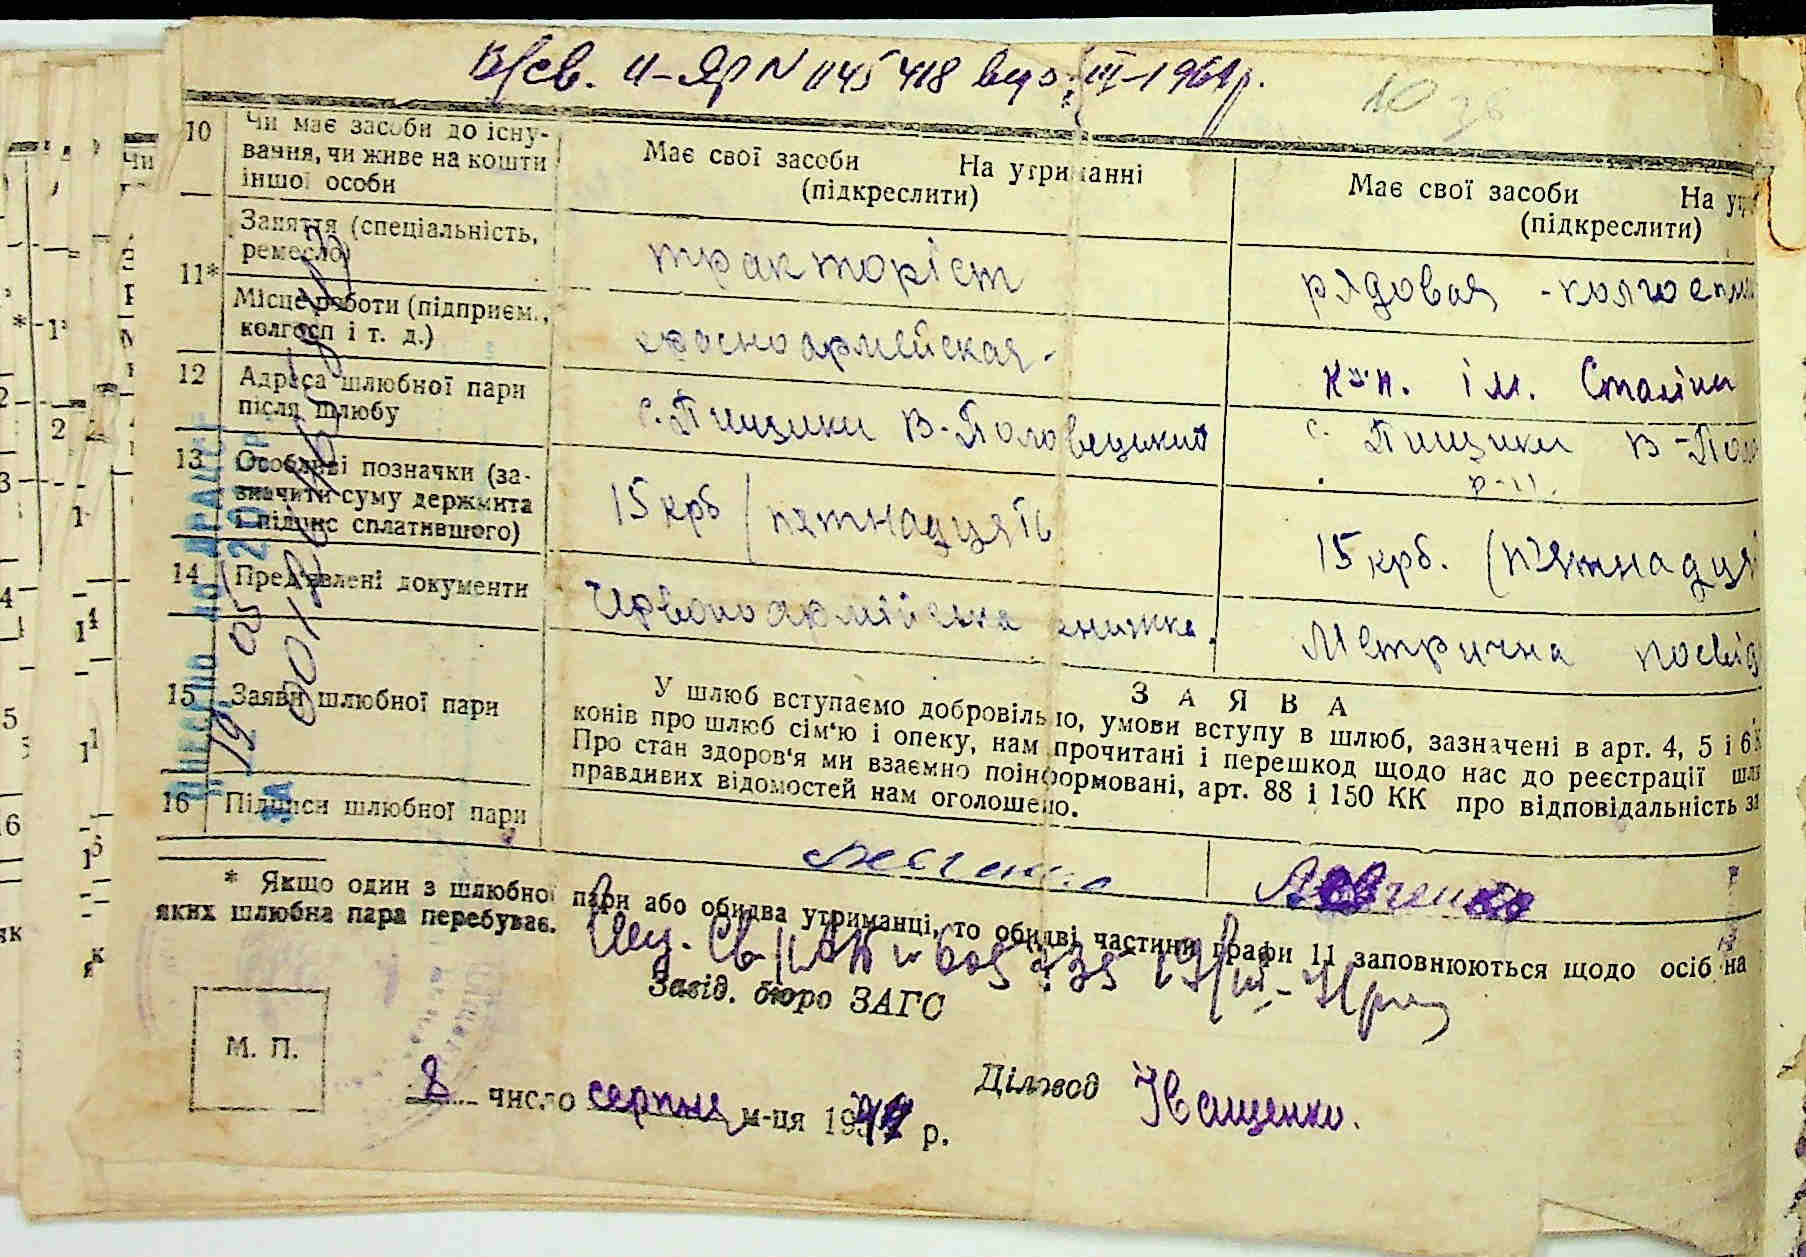 В/св. II-ЯР N 045418
10 зв
10 Чи має засоби до існу-
вання, чи живе на кошти
іншої особи
Має свої засоби На утриманні
(підкреслити)
Має свої засоби На утр
(підкреслити)
11* Заняття (спеціальність,
ремесло)
тракторіст
рядовая -колгоспн
Місце роботи (підприєм.,
колгосп і т. д.)
красноармейская-
к-п. ім. Сталіна
12 Адреса шлюбної пари
після шлюбу
с. Пищики В-Половецький
с. Пищики В-Поло
р-н.
13 Особливі позначки (за-
значити суму держмита
і підпис сплатившого)
15 крб / пятнадцять
15 крб. (п'ятнадця
14 Пред'явлені документи
Червоноармійська книжка.
Метрична посвід
15 Заяви шлюбної пари
ЗАЯВА
У шлюб вступаємо добровільно, умови вступу в шлюб, зазначені в арт. 4, 5 і 6
конів про шлюб сім'ю і опеку, нам прочитані і перешкод щодо нас до реєстрації шлю
Про стан здоров'я ми взаємно поінформовані, арт. 88 і 150 КК про відповідальність за
правдивих відомостей нам оголошено.
16 Підписи шлюбної пари
Левченко
Левченко
* Якщо один з шлюбної пари або обидва утриманці, то обидві частини графи 11 заповнюються щодо осіб на
яких шлюбна пара перебуває.
Завід. бюро ЗАГС
М. П.
8 число серпня м-ця 1944 р.
Діловод Іващенко.